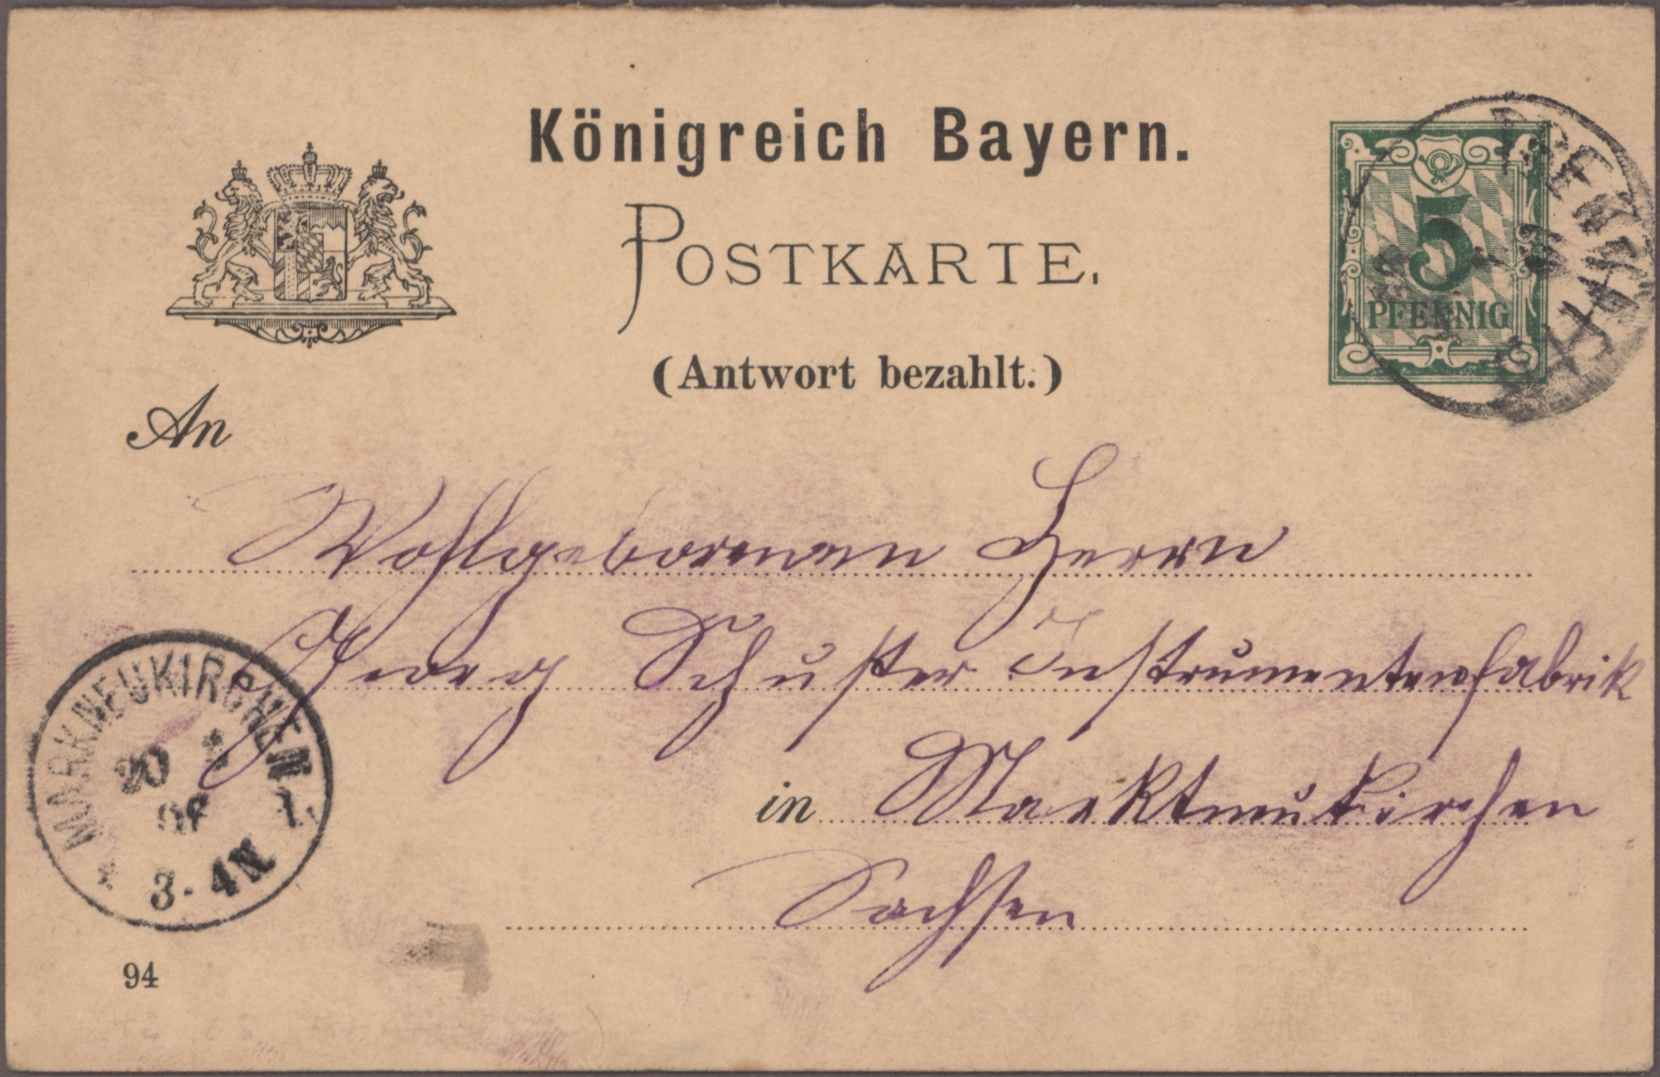 Königreich Bayern.
POSTKARTE.
(Antwort bezahlt.)
5
PFENNIG
An
Wohlgebornen Herrn
Georg Schuster Instrumentenfabrik
in Marktneukirchen
Sachsen
MARKNEUKIRCHEN
20 1
96
3-4N
94